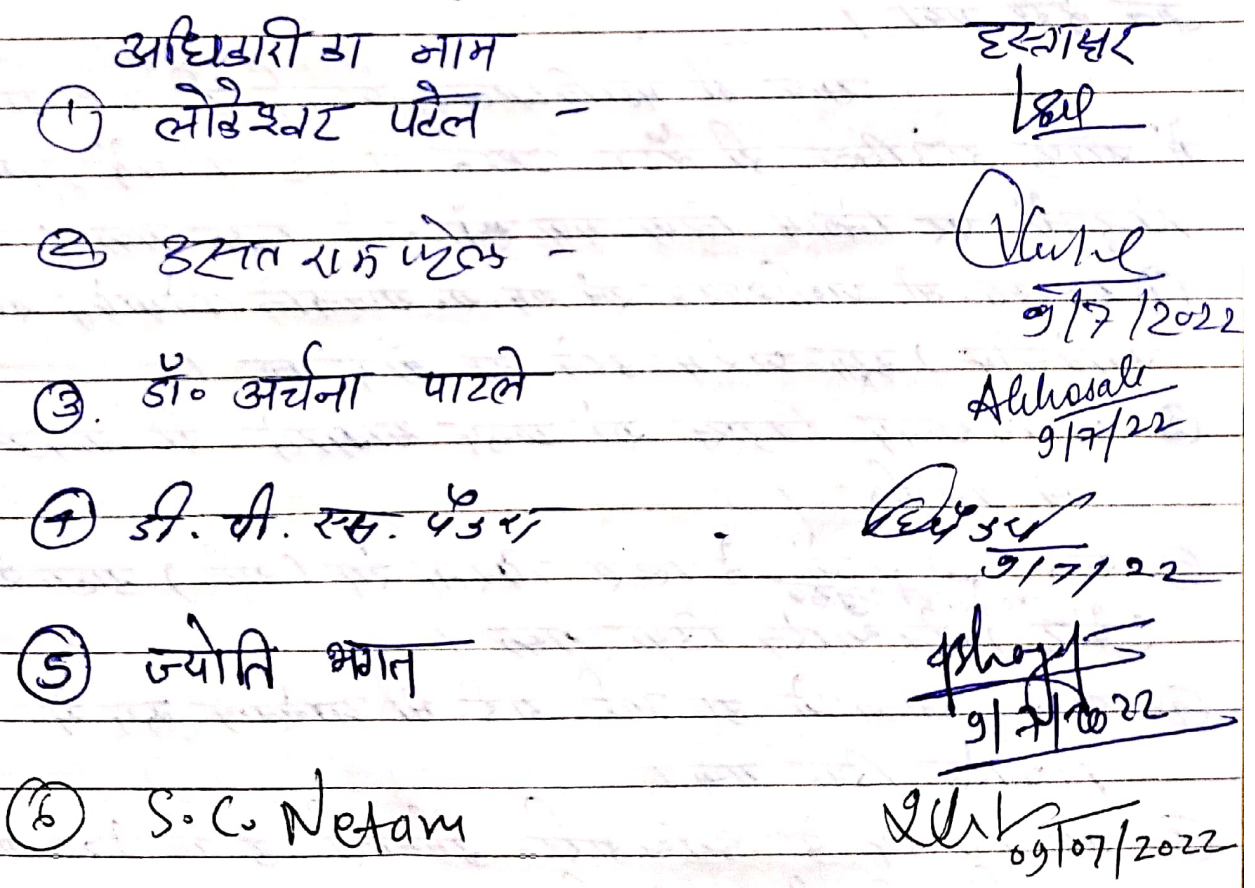 अधिकारी का नाम हस्ताक्षर
① लोकेश्वर पटेल -
② राम पटेल -
9/7/2022
③. डॉ० अर्चना पाटले
9/7/22
④ डी. पी. एस. पैंकरा
9/7/22
⑤ ज्योति भगत
9/7/2022
⑥ S. C. Netam
09/07/2022